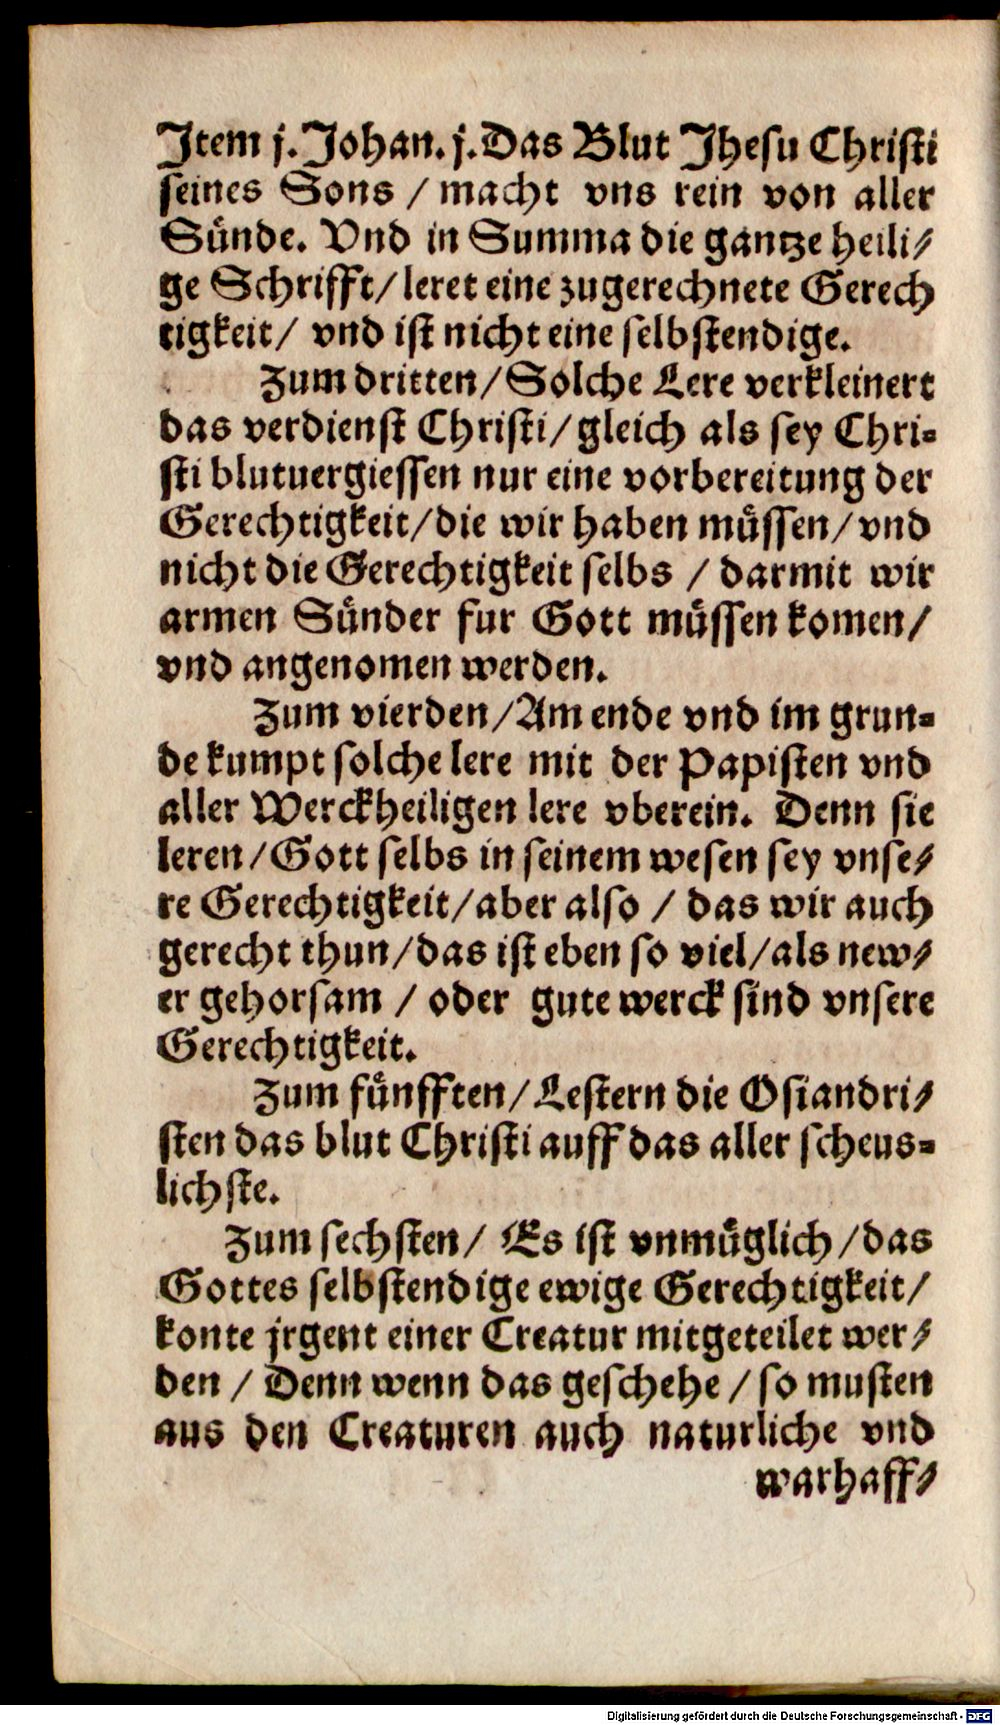 Jtem j. Johan. j. Das Blut Jhesu Christi
seines Sons / macht vns rein von aller
Sünde. Vnd in Summa die gantze heili⸗
ge Schrifft / leret eine zugerechnete Gerech
tigkeit / vnd ist nicht eine selbstendige.
Zum dritten / Solche Lere verkleinert
das verdienst Christi / gleich als sey Chri⸗
sti blutuergiessen nur eine vorbereitung der
Gerechtigkeit / die wir haben müssen / vnd
nicht die Gerechtigkeit selbs / darmit wir
armen Sünder fur Gott müssen komen /
vnd angenomen werden.
Zum vierden / Am ende vnd im grun⸗
de kumpt solche lere mit der Papisten vnd
aller Werckheiligen lere vberein. Denn sie
leren / Gott selbs in seinem wesen sey vnse⸗
re Gerechtigkeit / aber also / das wir auch
gerecht thun / das ist eben so viel / als new⸗
er gehorsam / oder gute werck sind vnsere
Gerechtigkeit.
Zum fünfften / Lestern die Osiandri⸗
sten das blut Christi auff das aller scheus⸗
lichste.
Zum sechsten / Es ist vnmüglich / das
Gottes selbstendige ewige Gerechtigkeit /
konte jrgent einer Creatur mitgeteilet wer⸗
den / Denn wenn das geschehe / so musten
aus den Creaturen auch naturliche vnd
warhaff⸗
Digitalisierung gefördert durch die Deutsche Forschungsgemeinschaft - DFG